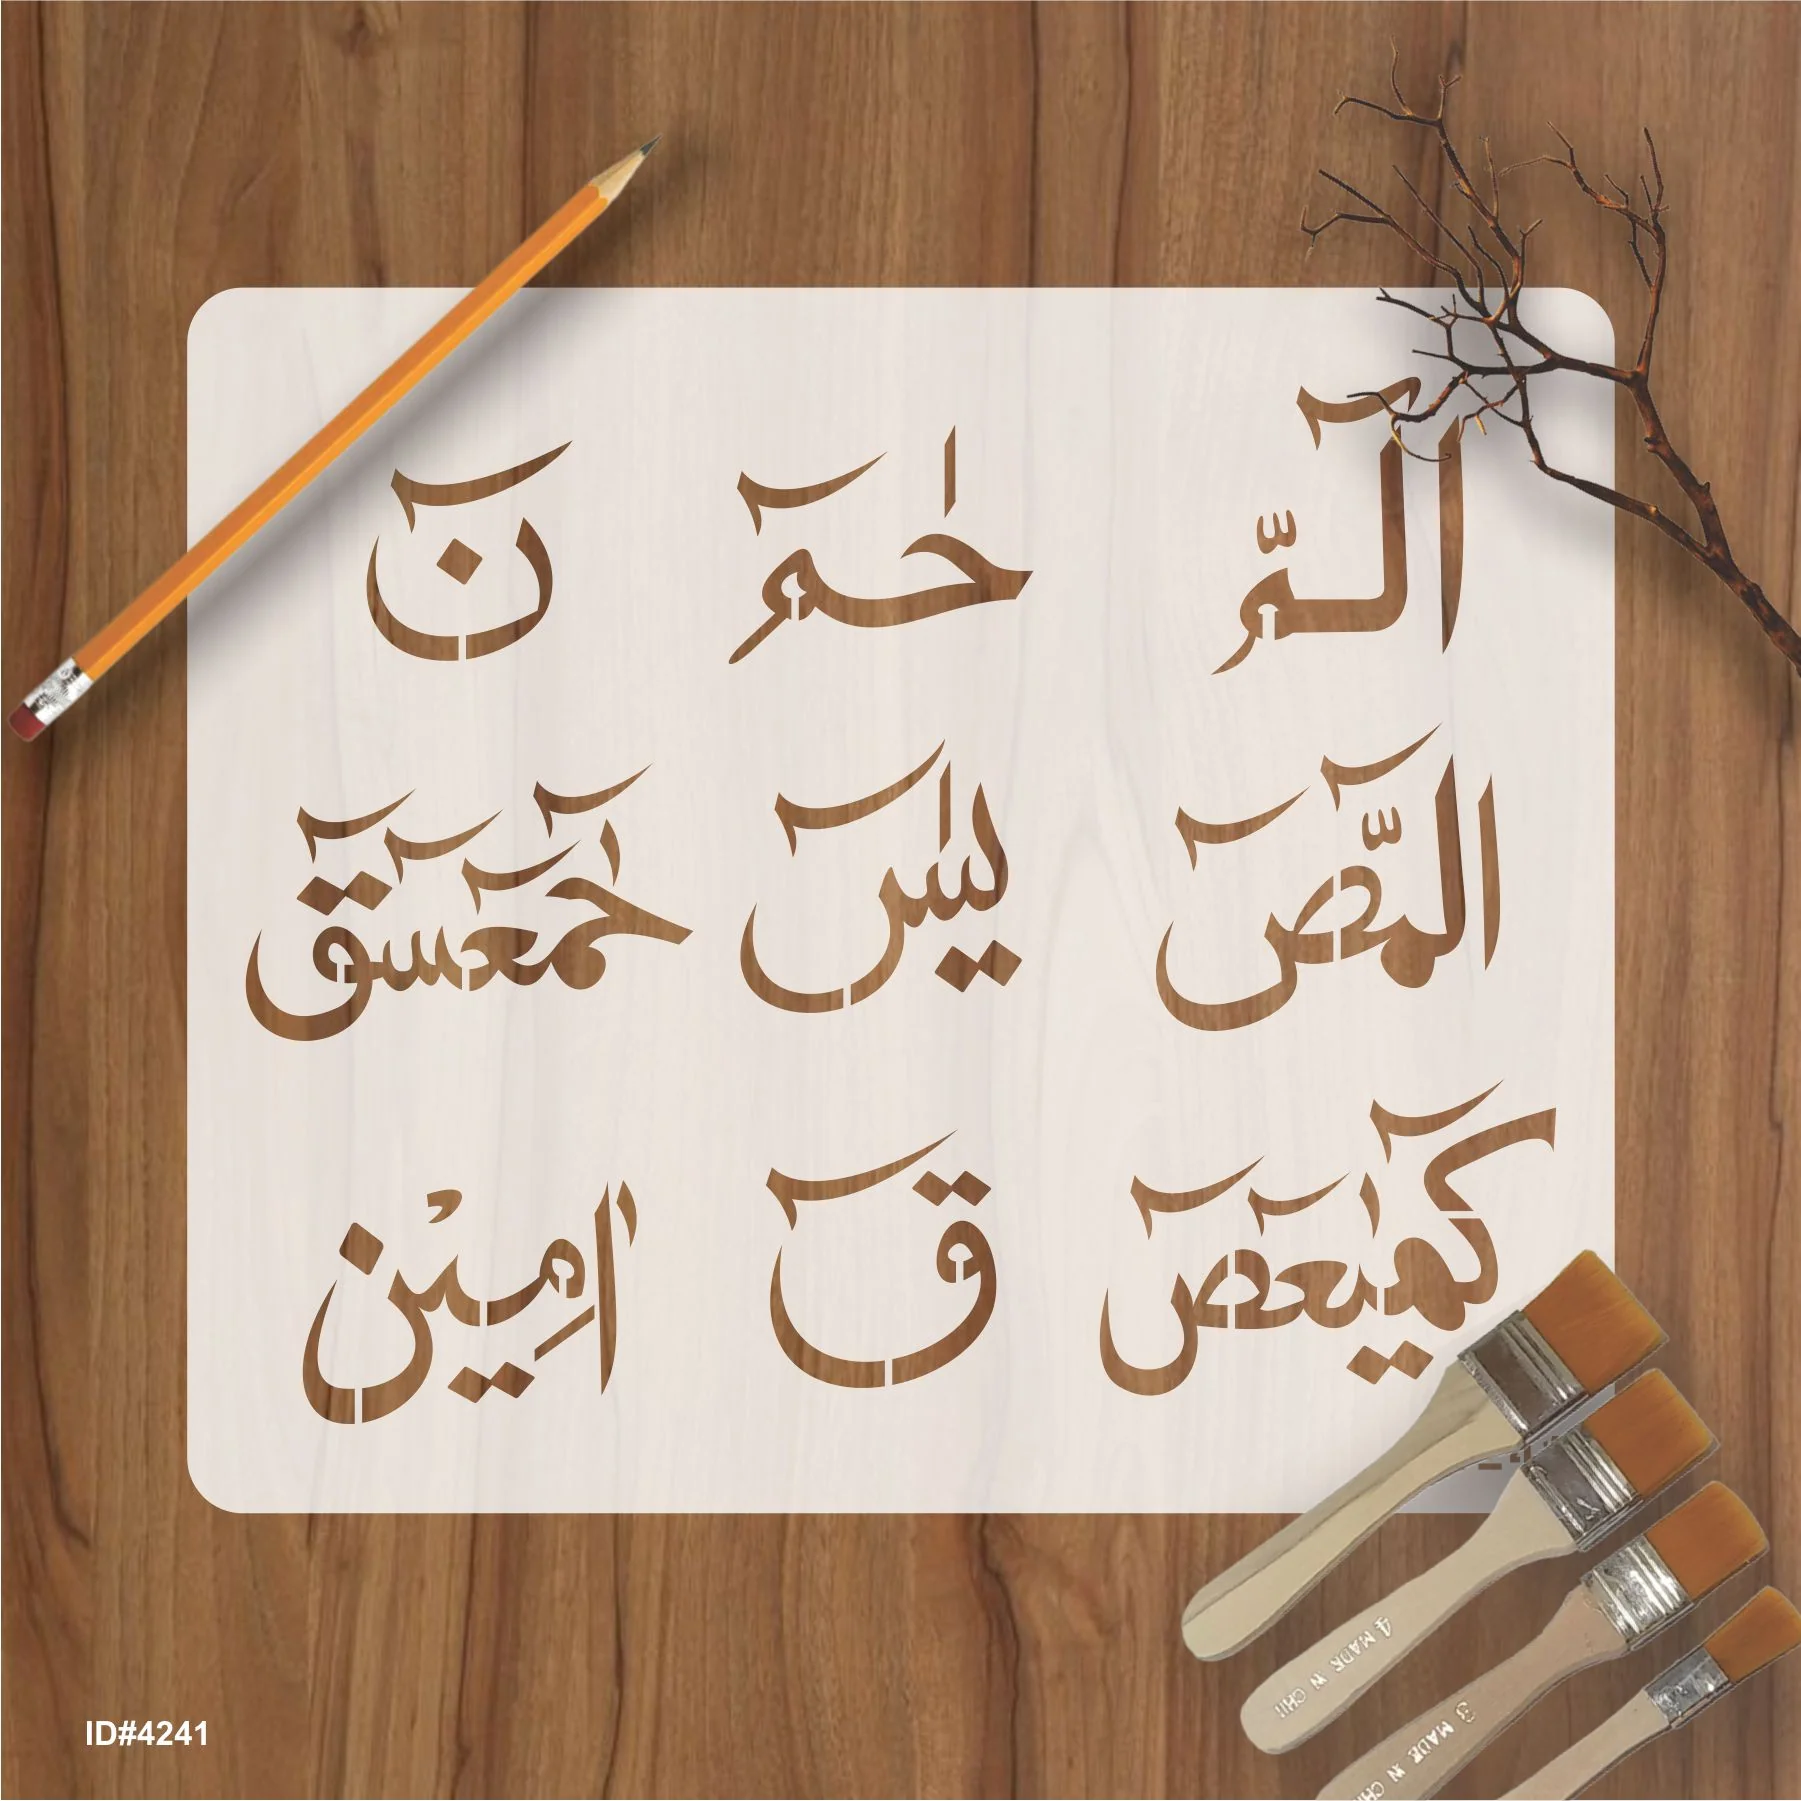 الٓمّٓ حٰمٓ نٓ
المّٓصٓ يٰسٓ حٰمٓعٓسٓقٓ
كٓهٰيٰعٓصٓ قٓ اٰمِيْن
4 MADE IN CHI
3 MADE IN CHI
ID#4241